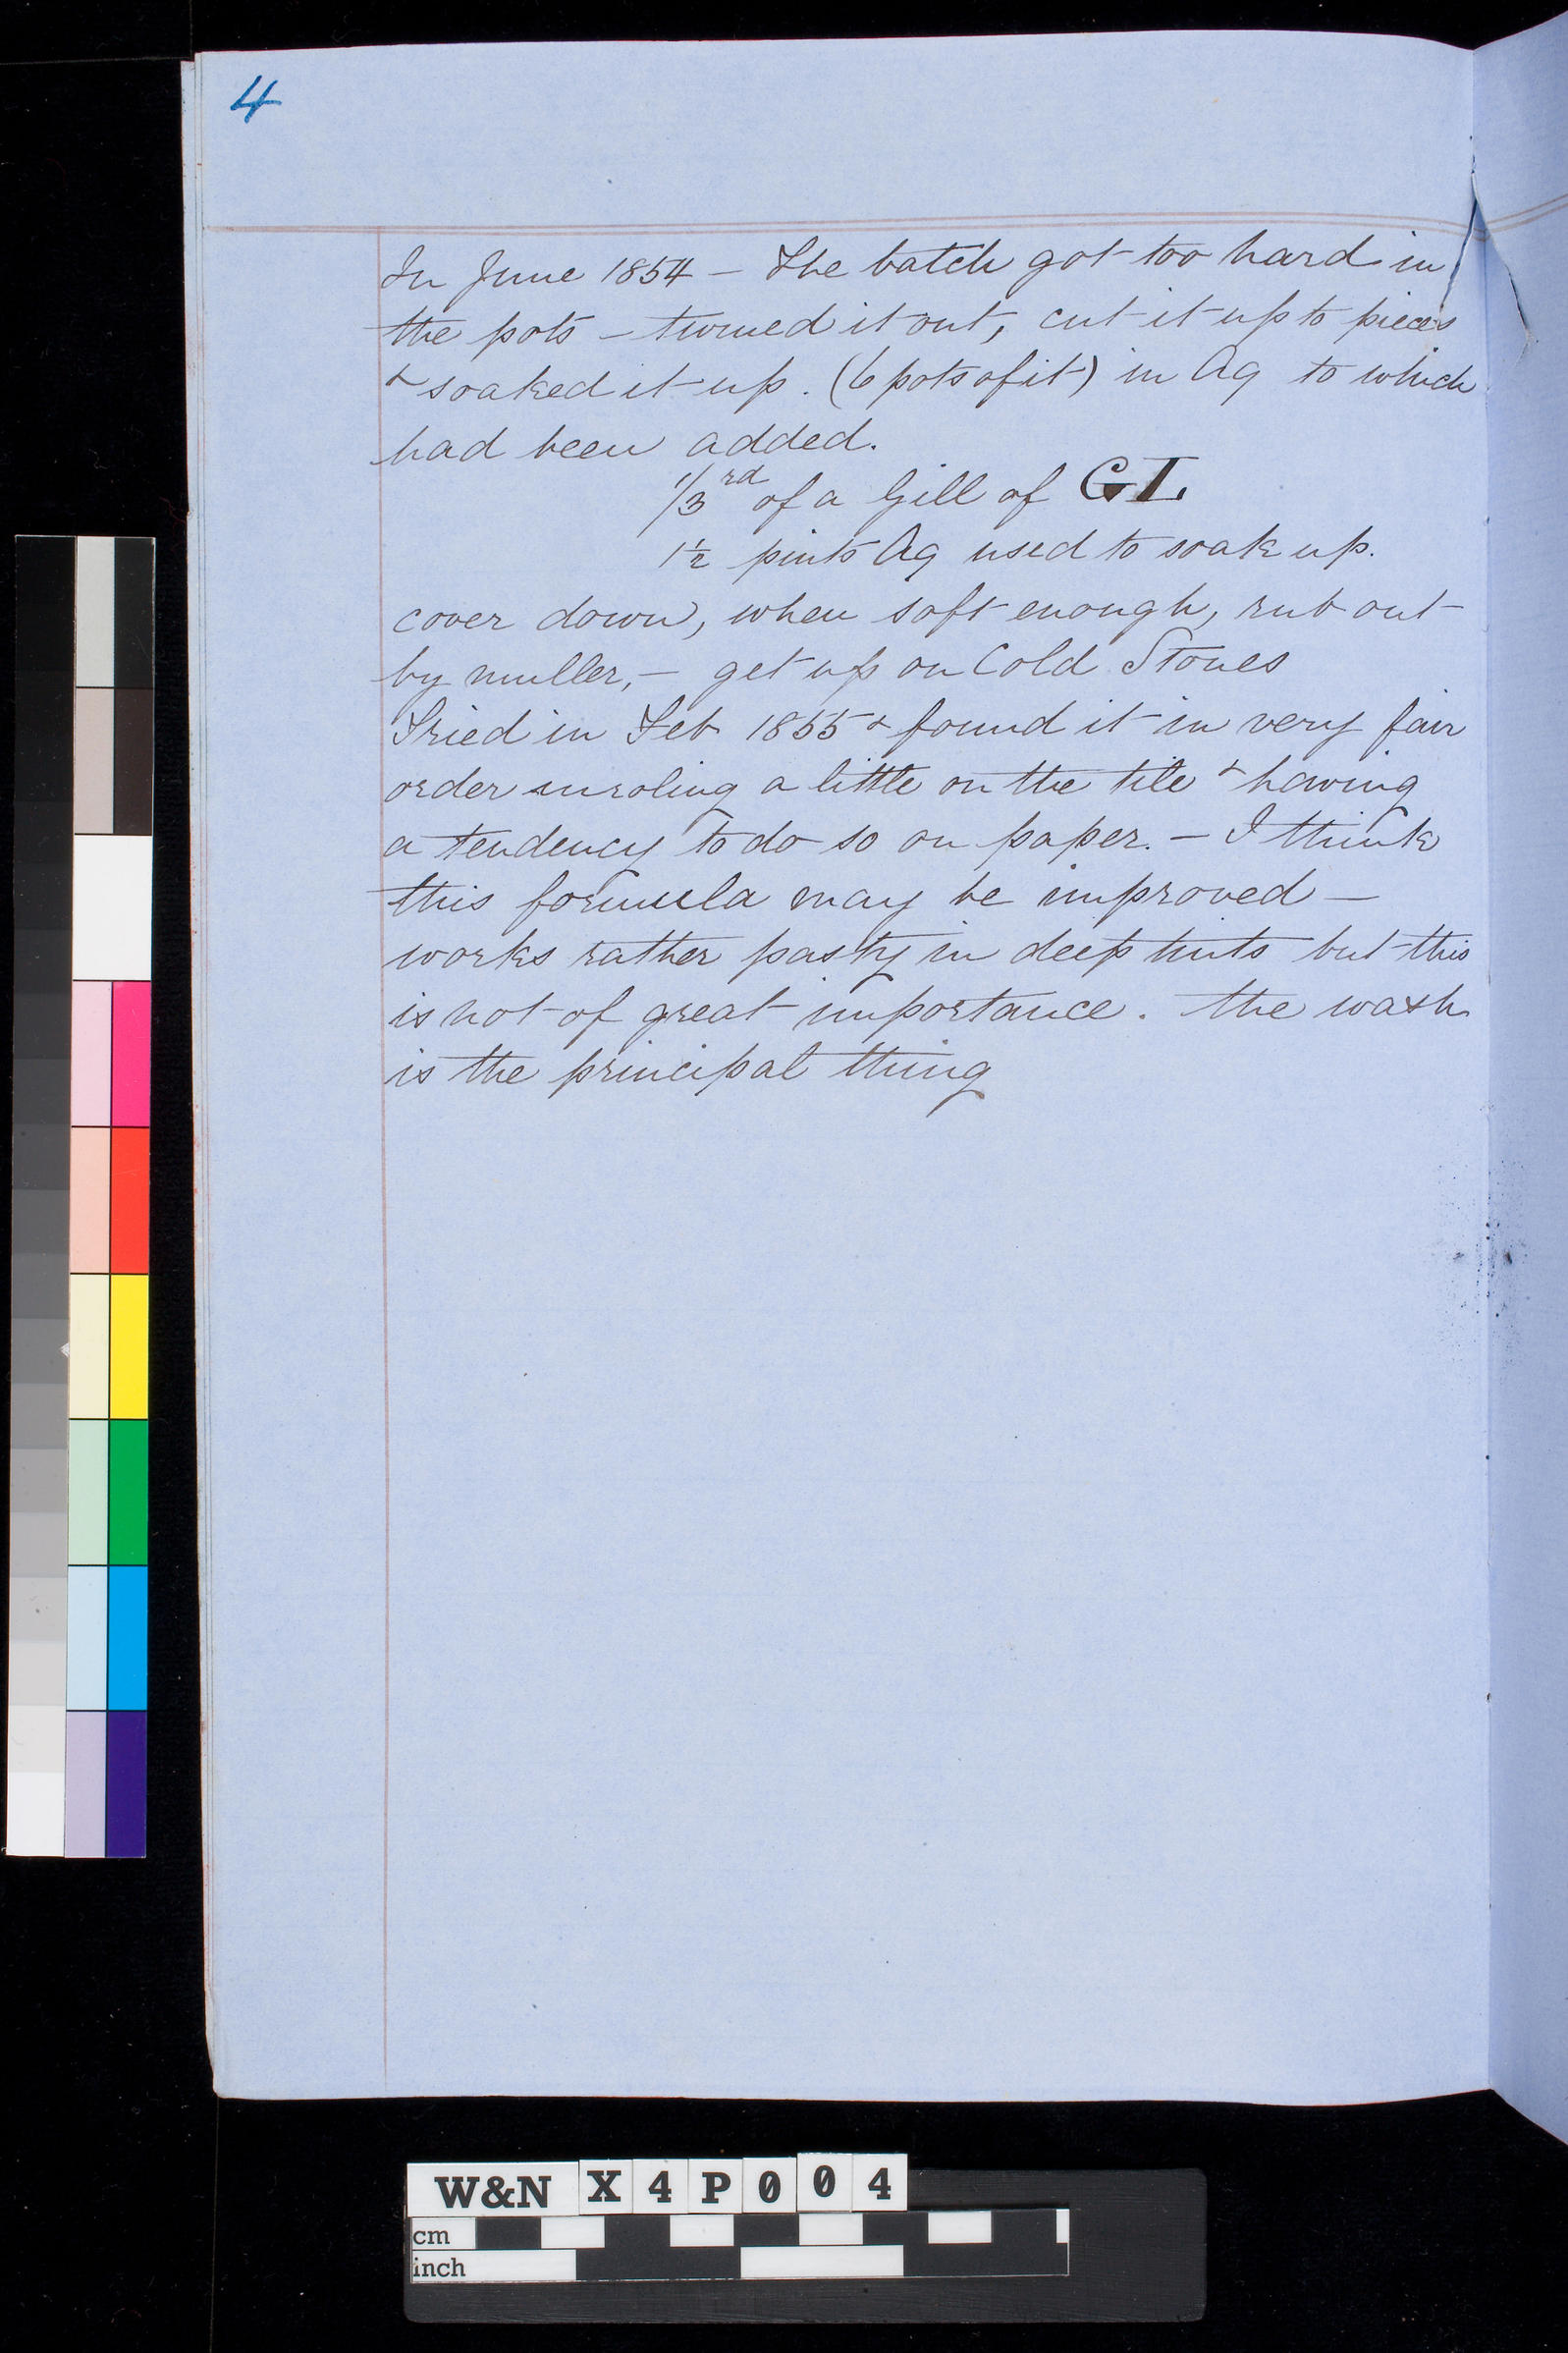 4
In June 1854 – The batch got too hard in
the pots – turned it out, cut it up to pieces
& soaked it up. (6 pots of it) in Aq to which
had been added.
1/3rd of a Gill of GL
1½ pints Aq used to soak up.
cover down, when soft enough, rub out
by muller, – get up on Cold Stones
Tried in Feb 1855 & found it in very fair
order inroling a little on the tile & having
a tendency to do so on paper. – I think
this formula may be improved –
works rather pasty in deep tints but this
is not of great importance. the wash
is the principal thing
W&N X4P004
cm
inch